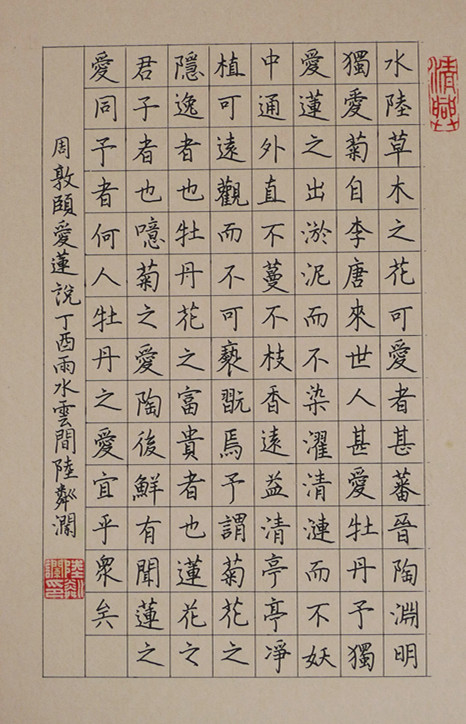 水陸草木之花可愛者甚蕃晉陶淵明
獨愛菊自李唐來世人甚愛牡丹予獨
愛蓮之出淤泥而不染濯清漣而不妖
中通外直不蔓不枝香遠益清亭亭凈
植可遠觀而不可褻翫焉予謂菊花之
隱逸者也牡丹花之富貴者也蓮花之
君子者也噫菊之愛陶後鮮有聞蓮之
愛同予者何人牡丹之愛宜乎衆矣
周敦頤愛蓮說丁酉雨水雲間陸粼瀾